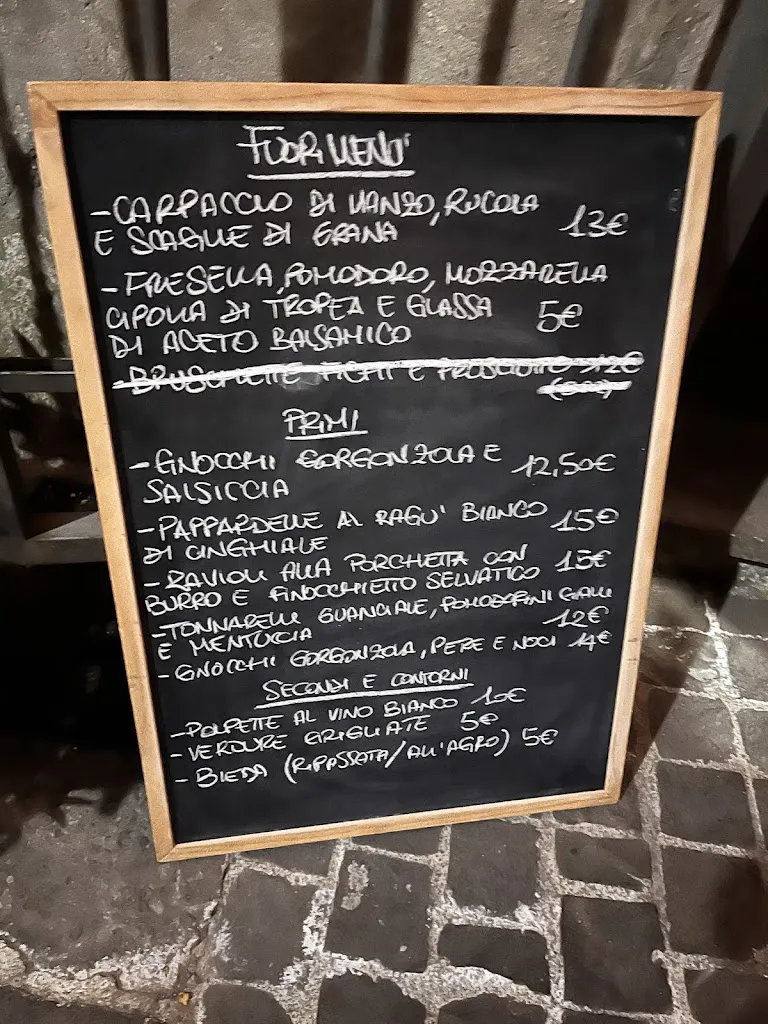 FUORI MENU'
- CARPACCIO DI MANZO, RUCOLA
E SCAGLIE DI GRANA 13€
- FRESELLA, POMODORO, MOZZARELLA
CIPOLLA DI TROPEA E GLASSA
DI ACETO BALSAMICO 5€
- BRUSCHETTE FICHI E PROSCIUTTO 12€
PRIMI
- GNOCCHI GORGONZOLA E
SALSICCIA 12,50€
- PAPPARDELLE AL RAGU' BIANCO
DI CINGHIALE 15€
- RAVIOLI ALLA PORCHETTA CON
BURRO E FINOCCHIETTO SELVATICO 15€
- TONNARELLI GUANCIALE, POMODORINI GIALLI
E MENTUCCIA 12€
- GNOCCHI GORGONZOLA, PEPE E NOCI 14€
SECONDI E CONTORNI
- POLPETTE AL VINO BIANCO 10€
- VERDURE GRIGLIATE 5€
- BIEDA (RIPASSATA/ALL'AGRO) 5€